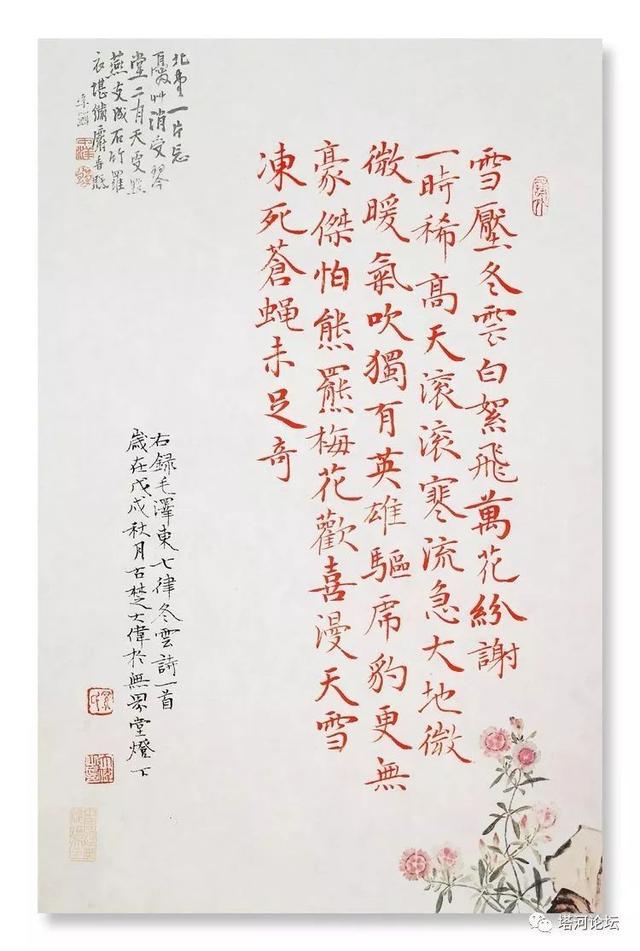 雪壓冬雲白絮飛萬花紛謝
一時稀高天滚滚寒流急大地微
微暖氣吹獨有英雄驅虎豹更無
豪傑怕熊羆梅花歡喜漫天雪
凍死蒼蝇未足奇
右録毛澤東七律冬雲詩一首
歲在戊戌秋月古楚大偉於無界堂燈下
北堂一片忘
憂艸消受琴
堂二百天更點
燕支成石竹羅
衣堪傍麝香眠
塔河论坛